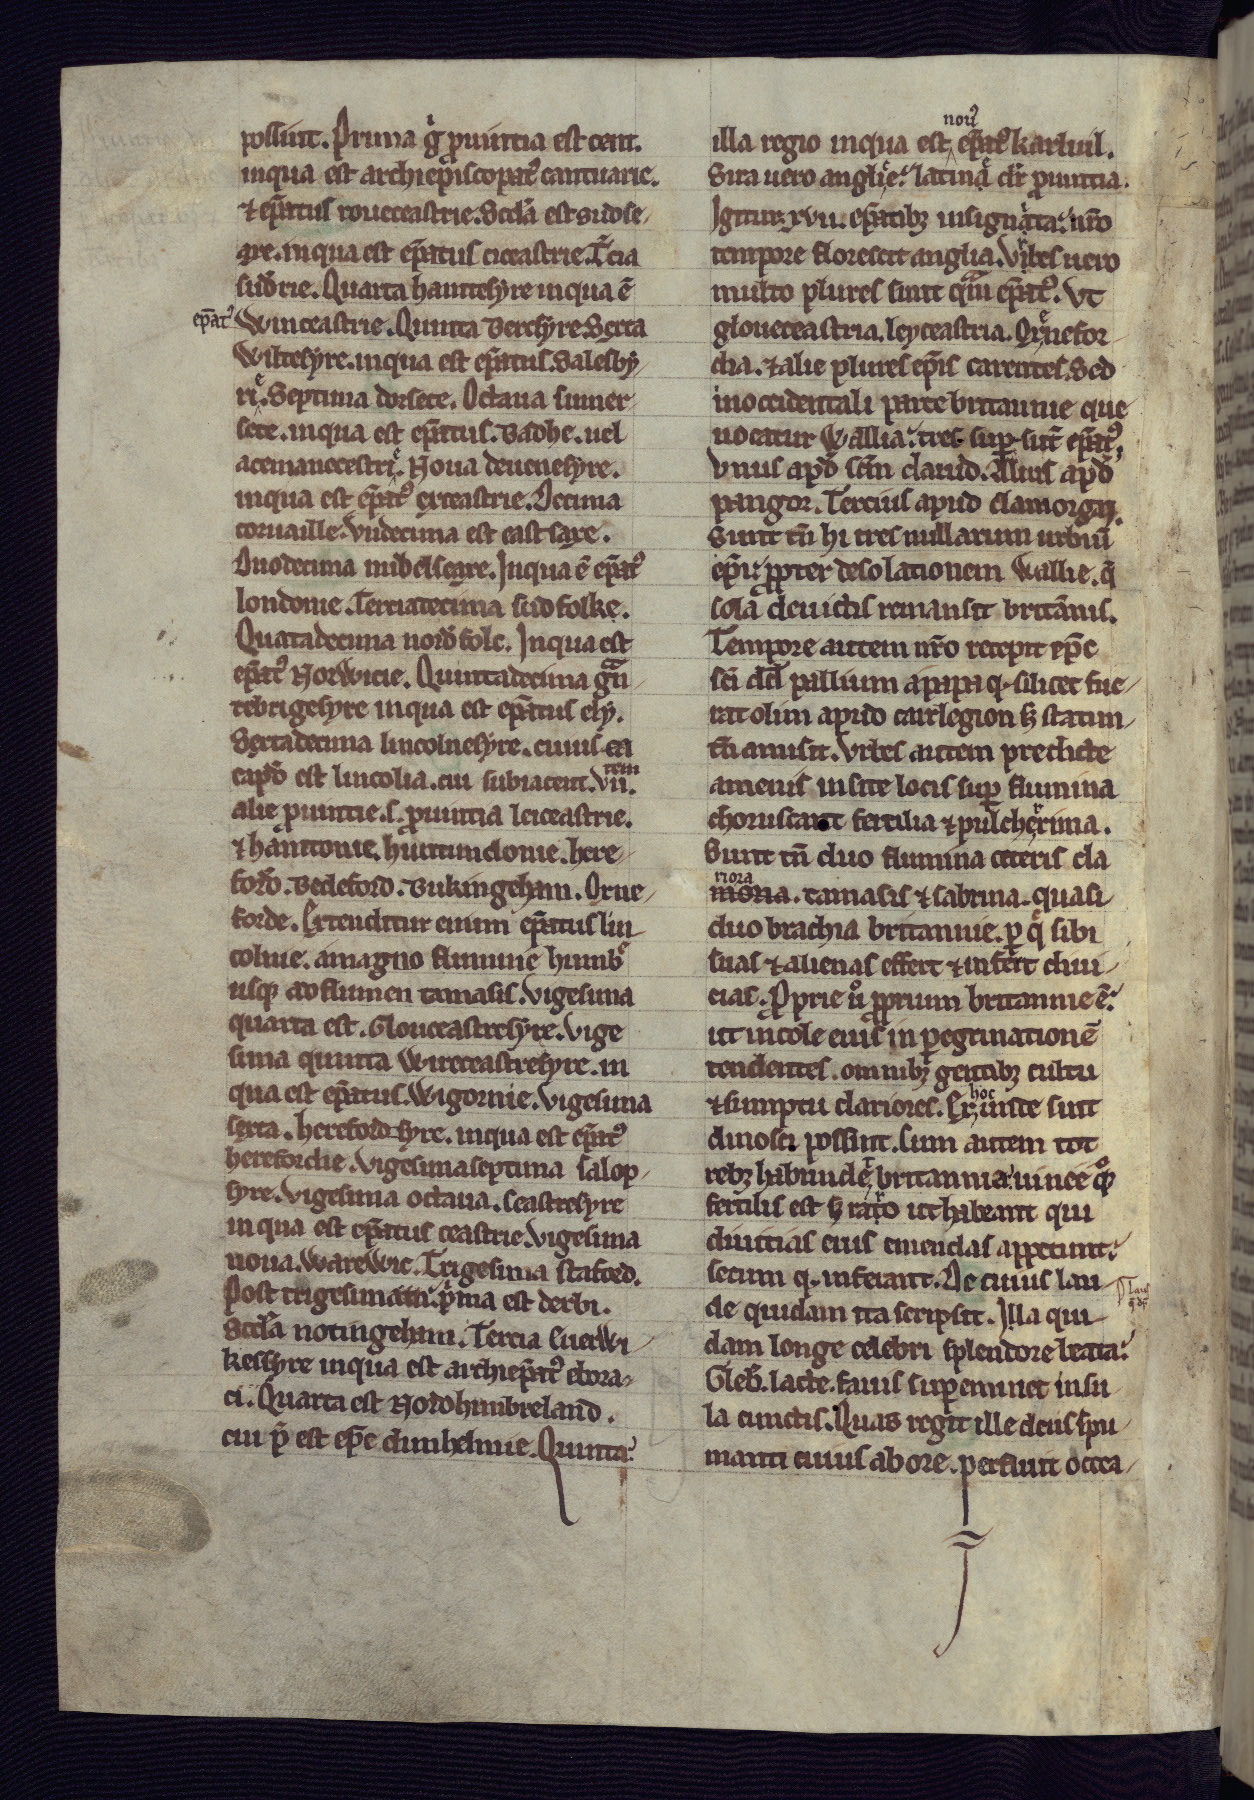 possint. Prima g̉ ꝓuintia est cent.
inqua est archiep̄iscopat᷒ cantuarie.
⁊ ep̄atus roueceastrie. Sc̄da est sudse-
xe. inqua est ep̄atus ciceastrie. T̉cia
sudrie. Quarta hamtesyre inqua ē
ep̄at᷒ Winceastrie. Quinta Bercsyre Sexta
Wiltesyre. inqua est ep̄atus. Salesby-
rię. Septima dorsete. Octaua sumer-
sete. inqua est ep̄atus. Badhe. uel
acemancestrię. Noua deuenesyre.
inqua est ep̄at᷒ exceastrie. Decima
cornaille. Vndecima est eastsaxe.
Duodecima middelseaxe. Inqua ē ep̄at᷒
londonie. Terciadecima sudfolke.
Quatadecima nordfolc. Inqua est
ep̄at᷒ Norwicie. Quintadecima gᵃn-
tebrigesyre inqua est ep̄atus ely.
Sextadecima lincolnesyre. cuius ca
capđ est lincolia. cui subiacent. vii.tem
alie ꝓuintie. s. ꝓuintia leiceastrie.
⁊ hamtonie. huntundonie. here-
ford. Bedeford. Bukingeham. Oxne-
forde. Extenditur enim ep̄atus lin-
colnie. amagno flumine humbᵉ
usq; adflumen tamasis. Vigesima
quarta est. Glouceastresyre. Vige
sima quinta Wireceastresyre. in
qua est ep̄atus. Wigornie. Vigesima
sexta. herefordsyre. inqua est ep̄at᷒
herefordie. Vigesimaseptima salop-
syre. Vigesima octaua. Ceastresyre
inqua est ep̄atus ceastrie. Vigesima
noua. Warewic. Trigesima staford.
Post trigesimam: pⁱma est derbi.
Sc̄da notingeham. Tercia Euerwi-
kessyre inqua est archiep̄at᷒ ebora-
ci. Quarta est Nordhimbreland.
cui p̄ est ep̄c dunhelmie. Quinta:
illa regio inqua est nou᷒ ep̄at᷒ karluil.
Sita uero anglię: latinᵉ dr̄ ꝓuintia.
Igitur xvii. ep̄atib; insignita: nr̄o
tempore florescit anglia. Vrbes uero
multo plures sunt qᵃm ep̄at᷒. Vt
glouceastria. leyceastria. Oxenefor-
dia. ⁊alie plures ep̄is carentes. Sed
inoccidentali parte britannie que
uocatur Wallia: tres. suꝑ sūt ep̄at᷒,
Vnus apđ sc̄m dauid. Alius apđ
pangor. Tercius apud clamorgan.
Sunt tn̄ hi tres nullarum urbiū
ep̄i: ꝓpter desolationem Wallie. q̄
sola deuictis remansit britānis.
Tempore autem nr̄o recepit ep̄c
sc̄i dd̄ pallium apapa q̇ silicet fue-
rat olim apud carlegion. s; statim
tn̄ amisit. Vrbes autem predicte
amenis insite locis suꝑ flumina
choruscant fertilia ⁊ pulcherrima.
Sunt tn̄ duo flumina ceteris cla
moria. riora tamasis ⁊ sabrina. quasi
duo brachia britannie. ꝑ qᵉ sibi
suas ⁊ alienas effert ⁊ infert diui-
cias. Ꝓprie ů ꝓprium britannie ē:
ut incole eius in ꝑegrinationē
tendentes. omnib; gentib; cultu
⁊sumptu clariores. Ex hoc iuste sint
dinosci possint. Cum autem tot
reb; habundet britannia: uinee ꝙ
fertilis est s; raro ut habeant qui
diuitias eius emendas appetunt:
secum q̇ inferant. De cuius lau-
de quidam ita scripsit. Illa qui-
dam longe celebri splendore beata:
Gleb᷒. lacte. fauis suꝑeminet insu-
la cunctis. Quas regit ille deus spu-
manti cuius abore. perfluit occea-